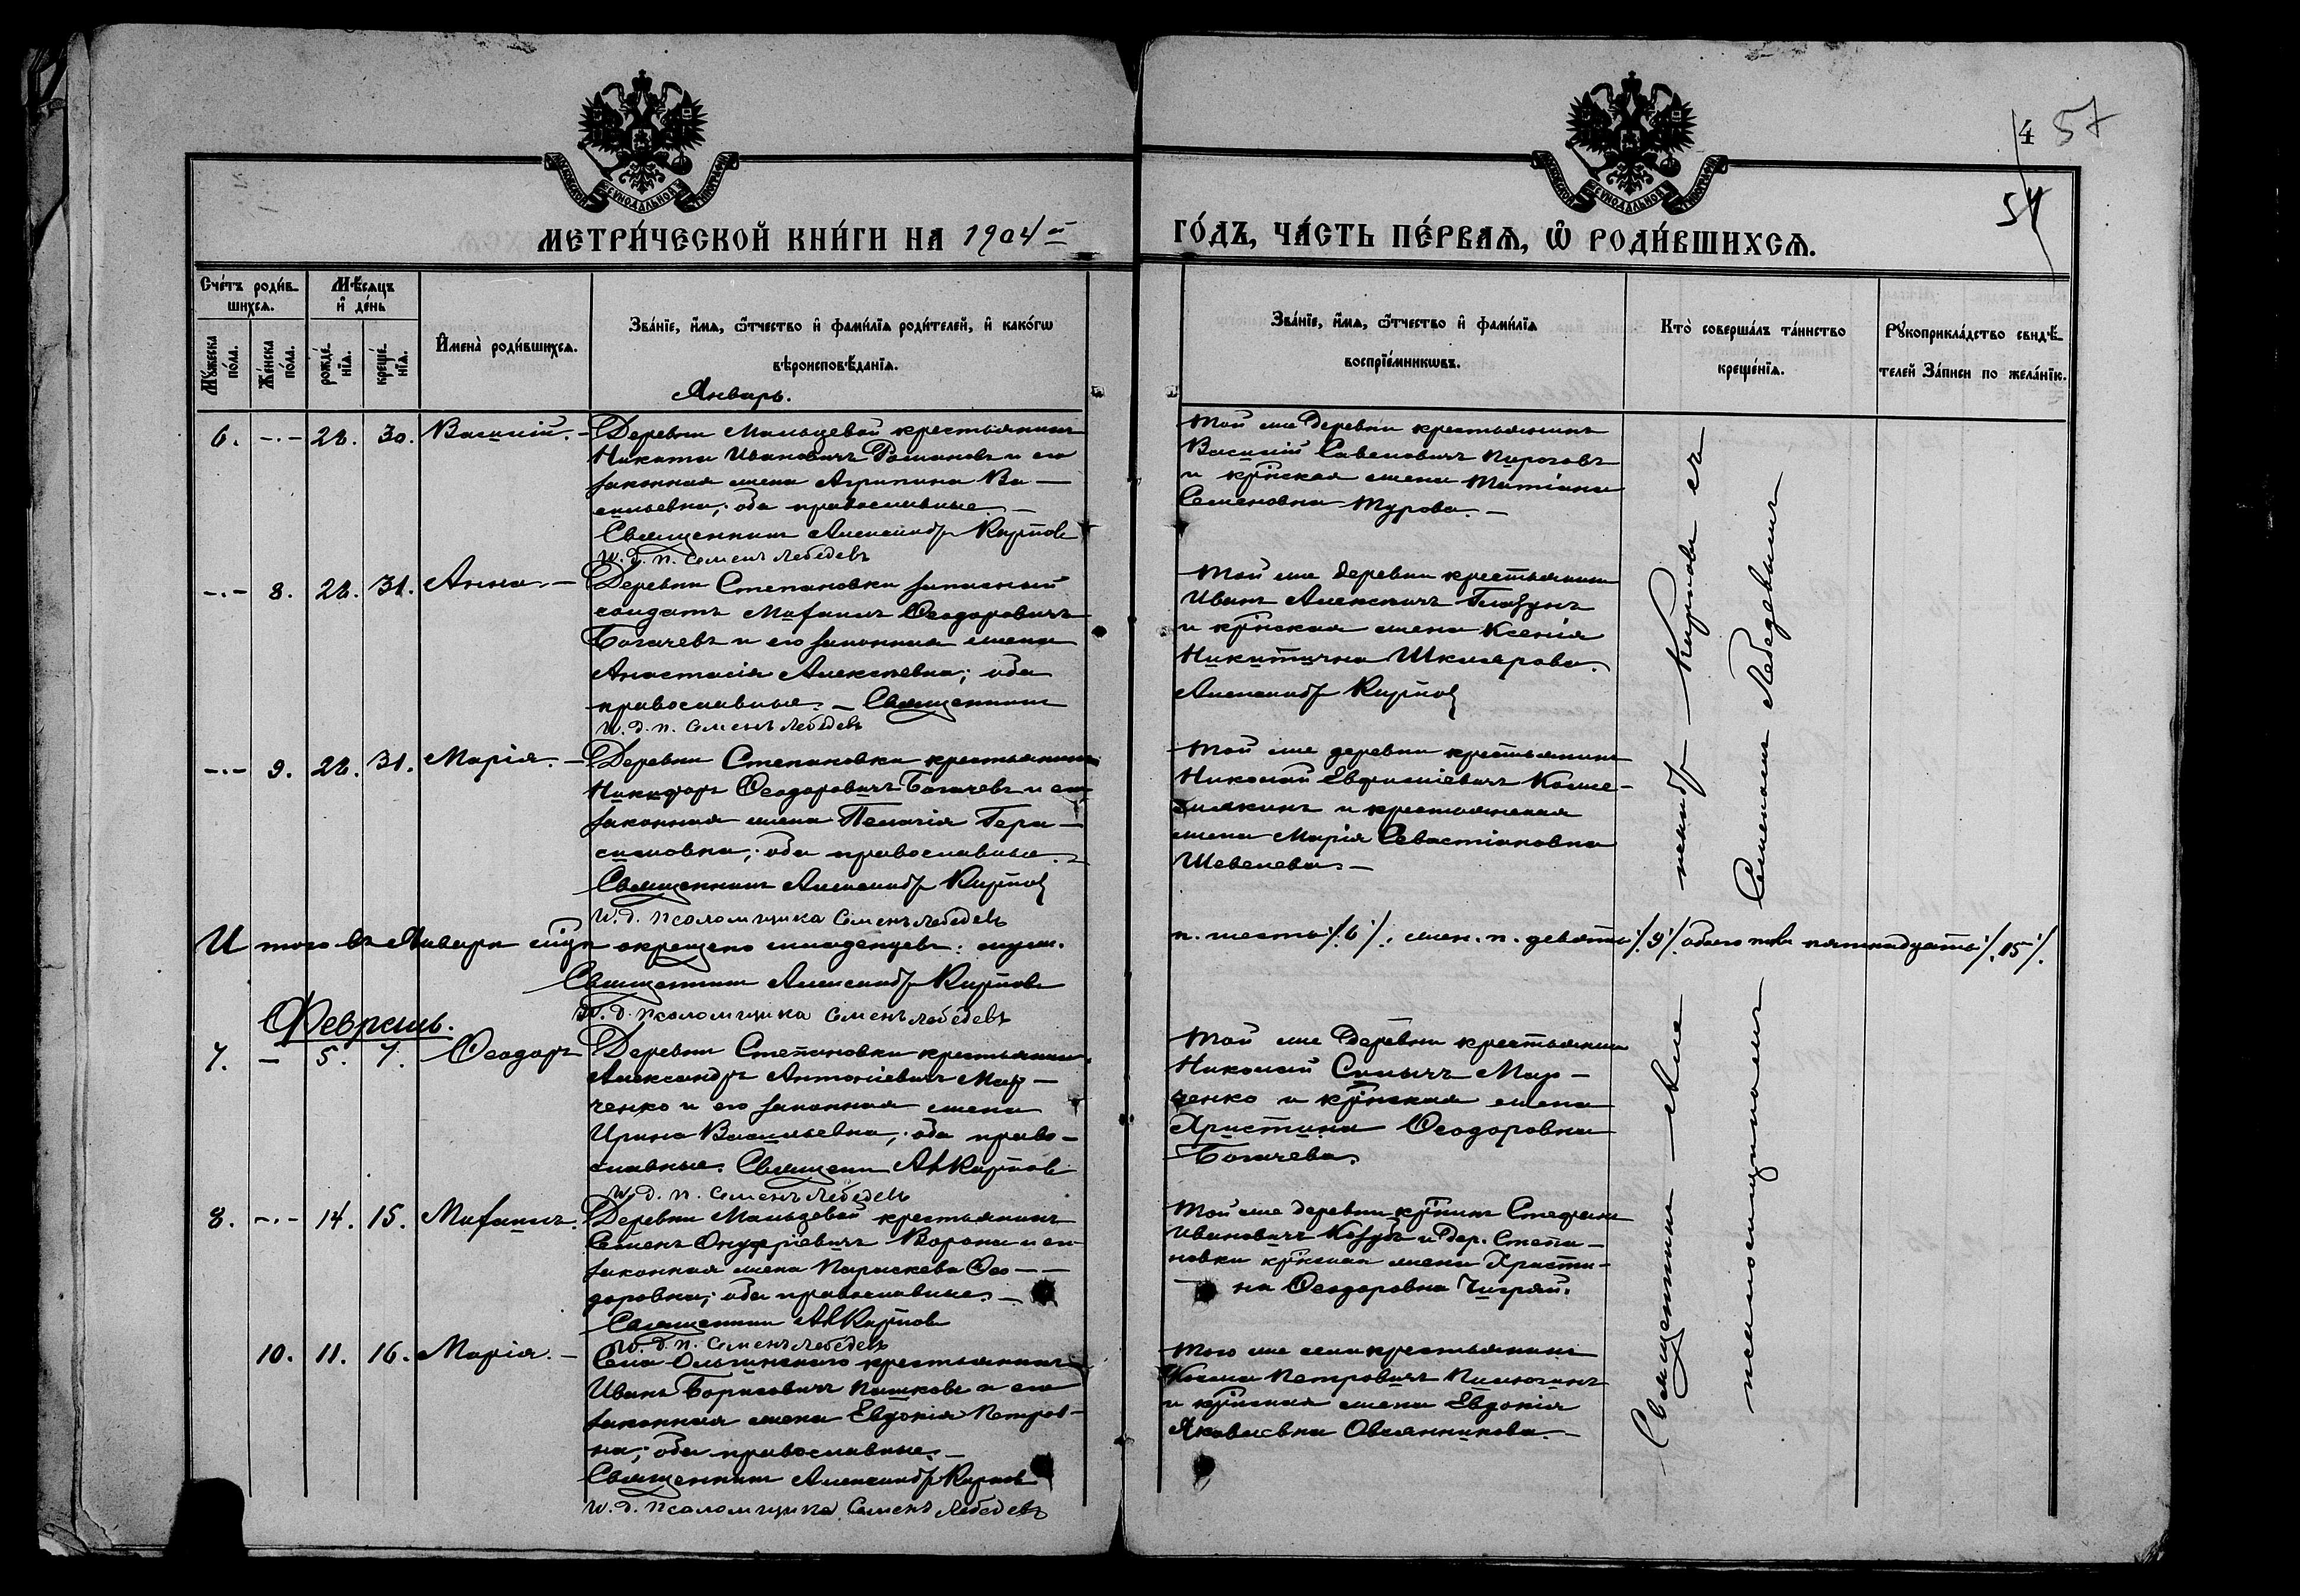 4 57
54
МОСКОВСКОЙ СѴНОДАЛЬНОЙ ТИПОГРАФІИ
МОСКОВСКОЙ СѴНОДАЛЬНОЙ ТИПОГРАФІИ
МЕТРИ́ЧЕСКОЙ КНИ́ГИ НА 1904й
ГО́ДЪ, ЧА́СТЬ ПЕ́РВАѦ, Ѿ РОДИ́ВШИХСѦ.
Сче́тъ роди́в-
шихсѧ.
Мѣ́сѧцъ
и҆ де́нь
Мꙋ́жеска по́ла.
Же́нска по́ла.
рожде́-нїѧ.
креще́-нїѧ.
И҆мена̀ роди́вшихсѧ.
Зва́нїе, и҆́мѧ, ѻ҆́тчество и҆ фами́лїѧ роди́телей, и҆ како́гѡ
вѣроисповѣ́данїѧ.
Зва́нїе, и҆́мѧ, ѻ҆́тчество и҆ фами́лїѧ
воспрїе́мникѡвъ.
Кто̀ соверша́лъ та́инство
креще́нїѧ.
Рꙋкоприкла́дство свидѣ́-
телей За́писи по жела́нїю.
Январь.
6. -.- 28. 30. Василій. - Деревни Мальцевой крестьянинъ
Никита Ивановичъ Романовъ и его
законная жена Агрипина Ва-
сильевна; оба православные. -
Священникъ Александръ Карпов
И. д. п. Семенъ Лебедевъ
Той же деревни крестьянинъ
Василій Савеловичъ Пироговъ
и кр҃нская жена Татіана
Семеновна Турова. -
-.- 8. 28. 31. Анна. - Деревни Степановки запасный
солдатъ Михаилъ Ѳеодоровичъ
Богачевъ и его законная жена
Анастасія Алексѣевна; оба
православные. - Священникъ
И. д. п. Семенъ Лебедевъ
Той же деревни крестьянинъ
Иванъ Алексѣевичъ Глазунъ
и кр҃нская жена Ксенія
Никитична Шклярова.
Александръ Карпов
-.- 9. 28. 31. Марія. - Деревни Степановки крестьянинъ
Никифоръ Ѳеодоровичъ Богачевъ и его
законная жена Пелагія Гера-
симовна; оба православные. -
Священникъ Александръ Карпов
И. д. псаломщика Семенъ Лебедевъ
Той же деревни крестьянинъ
Николай Евфиміевичъ Коже-
мякинъ и крестьянская
жена Марія Севастіановна
Шевелева. -
Итого въ Январѣ мцѣ окрещено младенцевъ: муж.
п. шесть /6/, жен. п. девять /9/ обоего пола пятнадцать /15/.
Священникъ Александръ Карпов
И. д. псаломщика Семенъ Лебедевъ
Февраль.
7. - 5. 7. Ѳеодоръ Деревни Степановки крестьянинъ
Александръ Антоніевичъ Мар-
ченко и его законная жена
Ирина Васильевна; оба право-
славные. Священн Ал Карпов
И. д. п. Семенъ Лебедевъ
Той же деревни крестьянинъ
Николай Силычъ Мар-
ченко и кр҃нская жена
Христина Ѳеодоровна
Богачева.
8. -.- 14. 15. Михаилъ. Деревни Мальцевой крестьянинъ
Семенъ Онуфріевичъ Ворона и его
законная жена Параскева Ѳео-
доровна; оба православные. -
Священникъ Ал Карпов
И. д. п. Семенъ Лебедевъ
Той же деревни кр҃нинъ Стефанъ
Ивановичъ Козубъ и дер. Степа-
новки кр҃нская жена Христи-
на Ѳеодоровна Чигряй.
10. 11. 16. Марія. - Села Ольгинского крестьянинъ
Иванъ Борисовичъ Пашковъ и его
законная жена Евдокія Петров-
на; оба православные. -
Священникъ Александръ Карпов
И. д. псаломщика Семенъ Лебедевъ
Того же села крестьянинъ
Косма Петровичъ Пилюгинъ
и кр҃нская жена Евдокія
Яковлевна Овсянникова. -
Священникъ Александръ Карповъ съ
псаломщикомъ Семеномъ Лебедевымъ